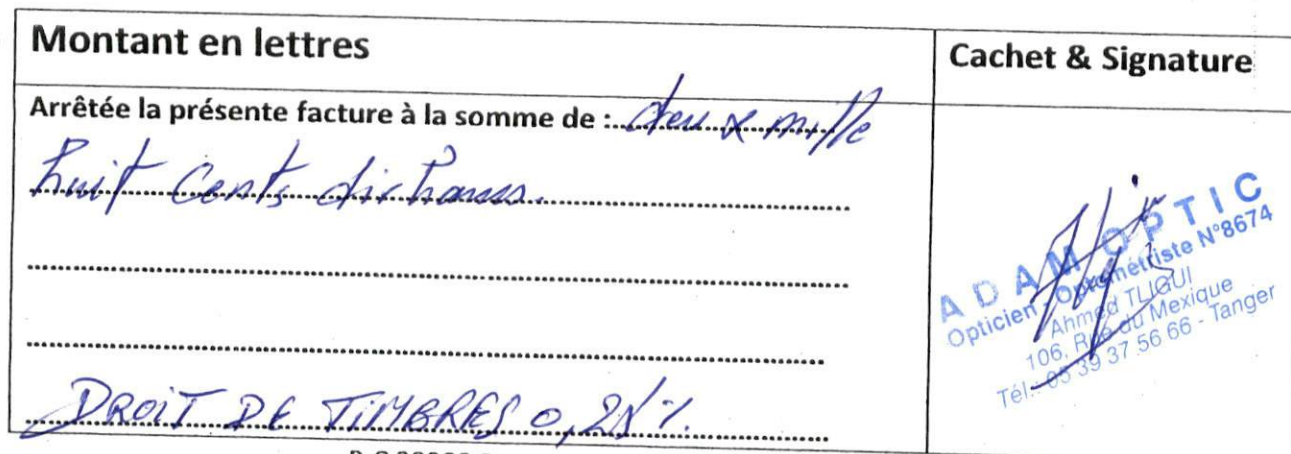 Montant en lettres
Cachet & Signature
Arrêtée la présente facture à la somme de : deux mille
huit cents dirhams.
DROIT DE TIMBRES 0,25%.
ADAM OPTIC
Opticien - Optométriste N°8674
Ahmed TLIGUI
106, Rue du Mexique
Tél.: 05 39 37 56 66 - Tanger